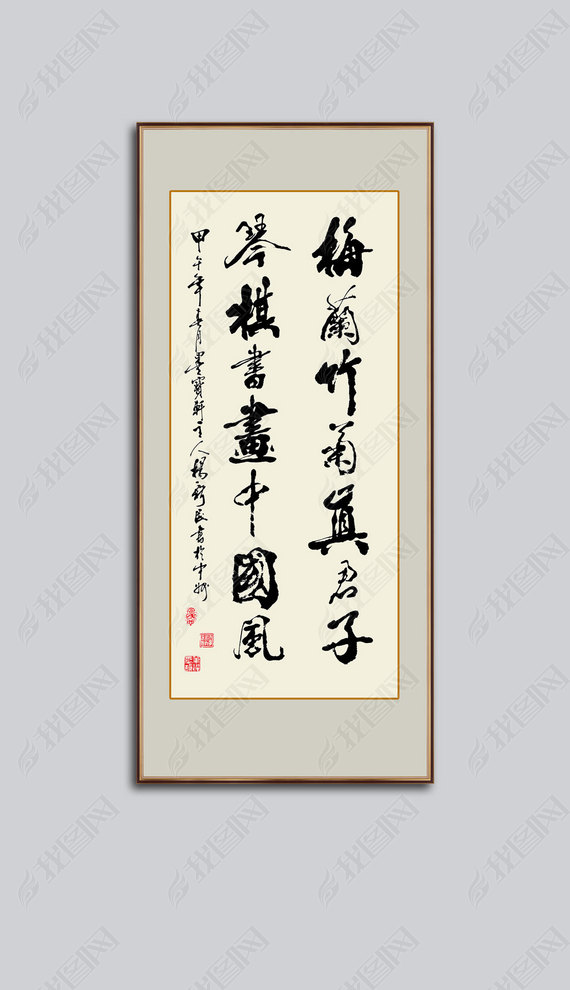 梅蘭竹菊真君子
琴棋書畫中國風
甲午年春月墨寶軒主人楊新民書於中州
我图网